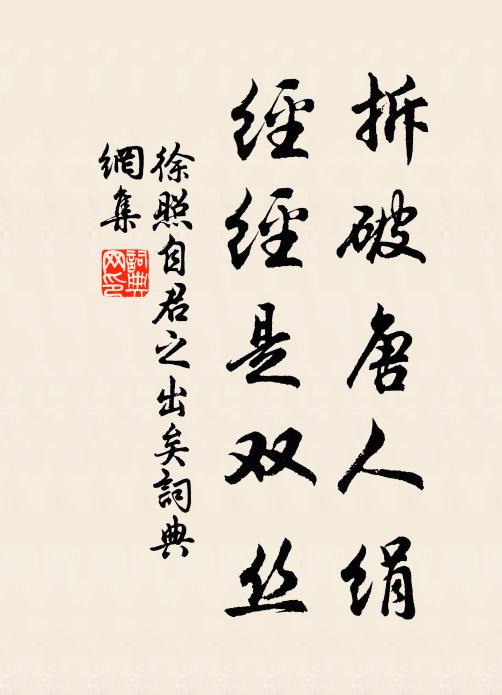 拆破唐人絹
經經是双丝
徐照自君之出矣詞典
網集
詞典
网印